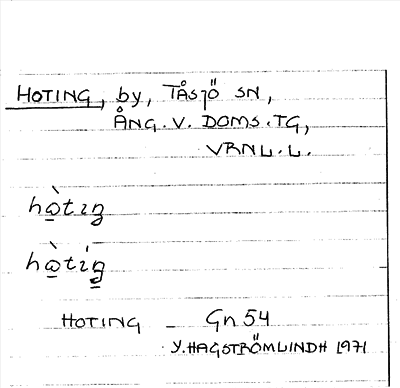 HOTING, by, TÅSJÖ SN,
ÅNG. V. DOMS. TG,
VRNL. L.
hò̲tiŋ
hò̲tíŋ̳
HOTING – Gn 54
Y. HAGSTRÖMLINDH 1971